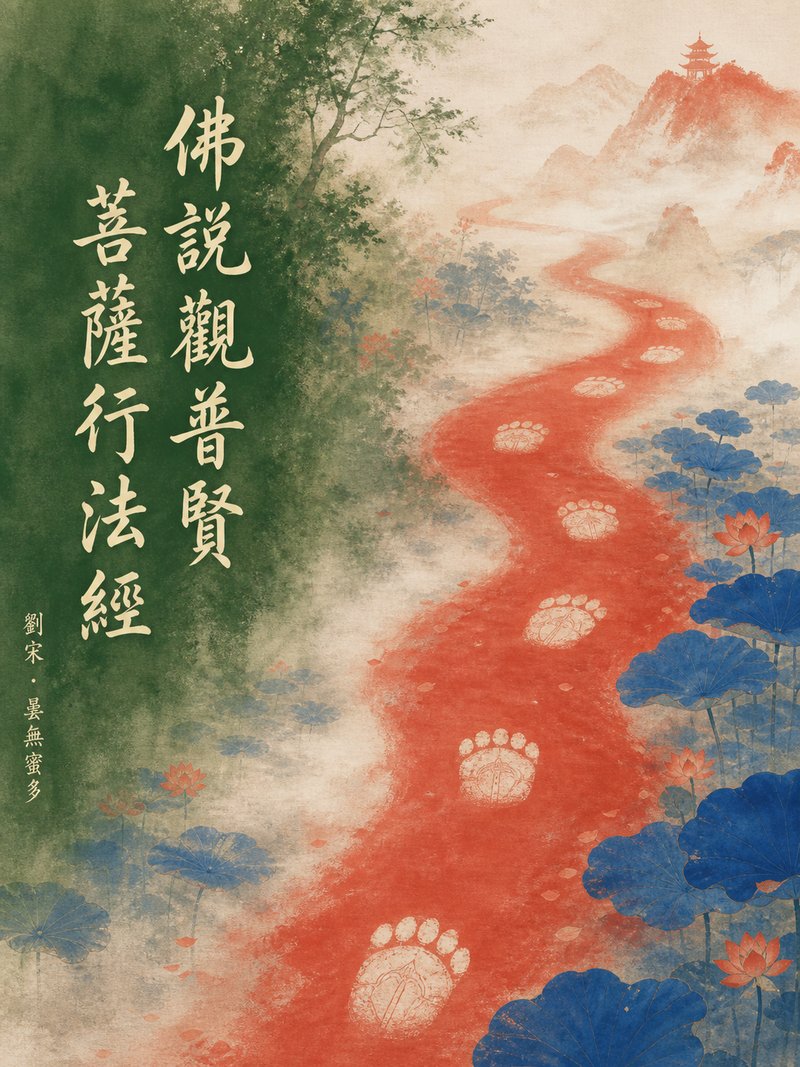 佛説觀普賢
菩薩行法經
劉宋・曇無蜜多